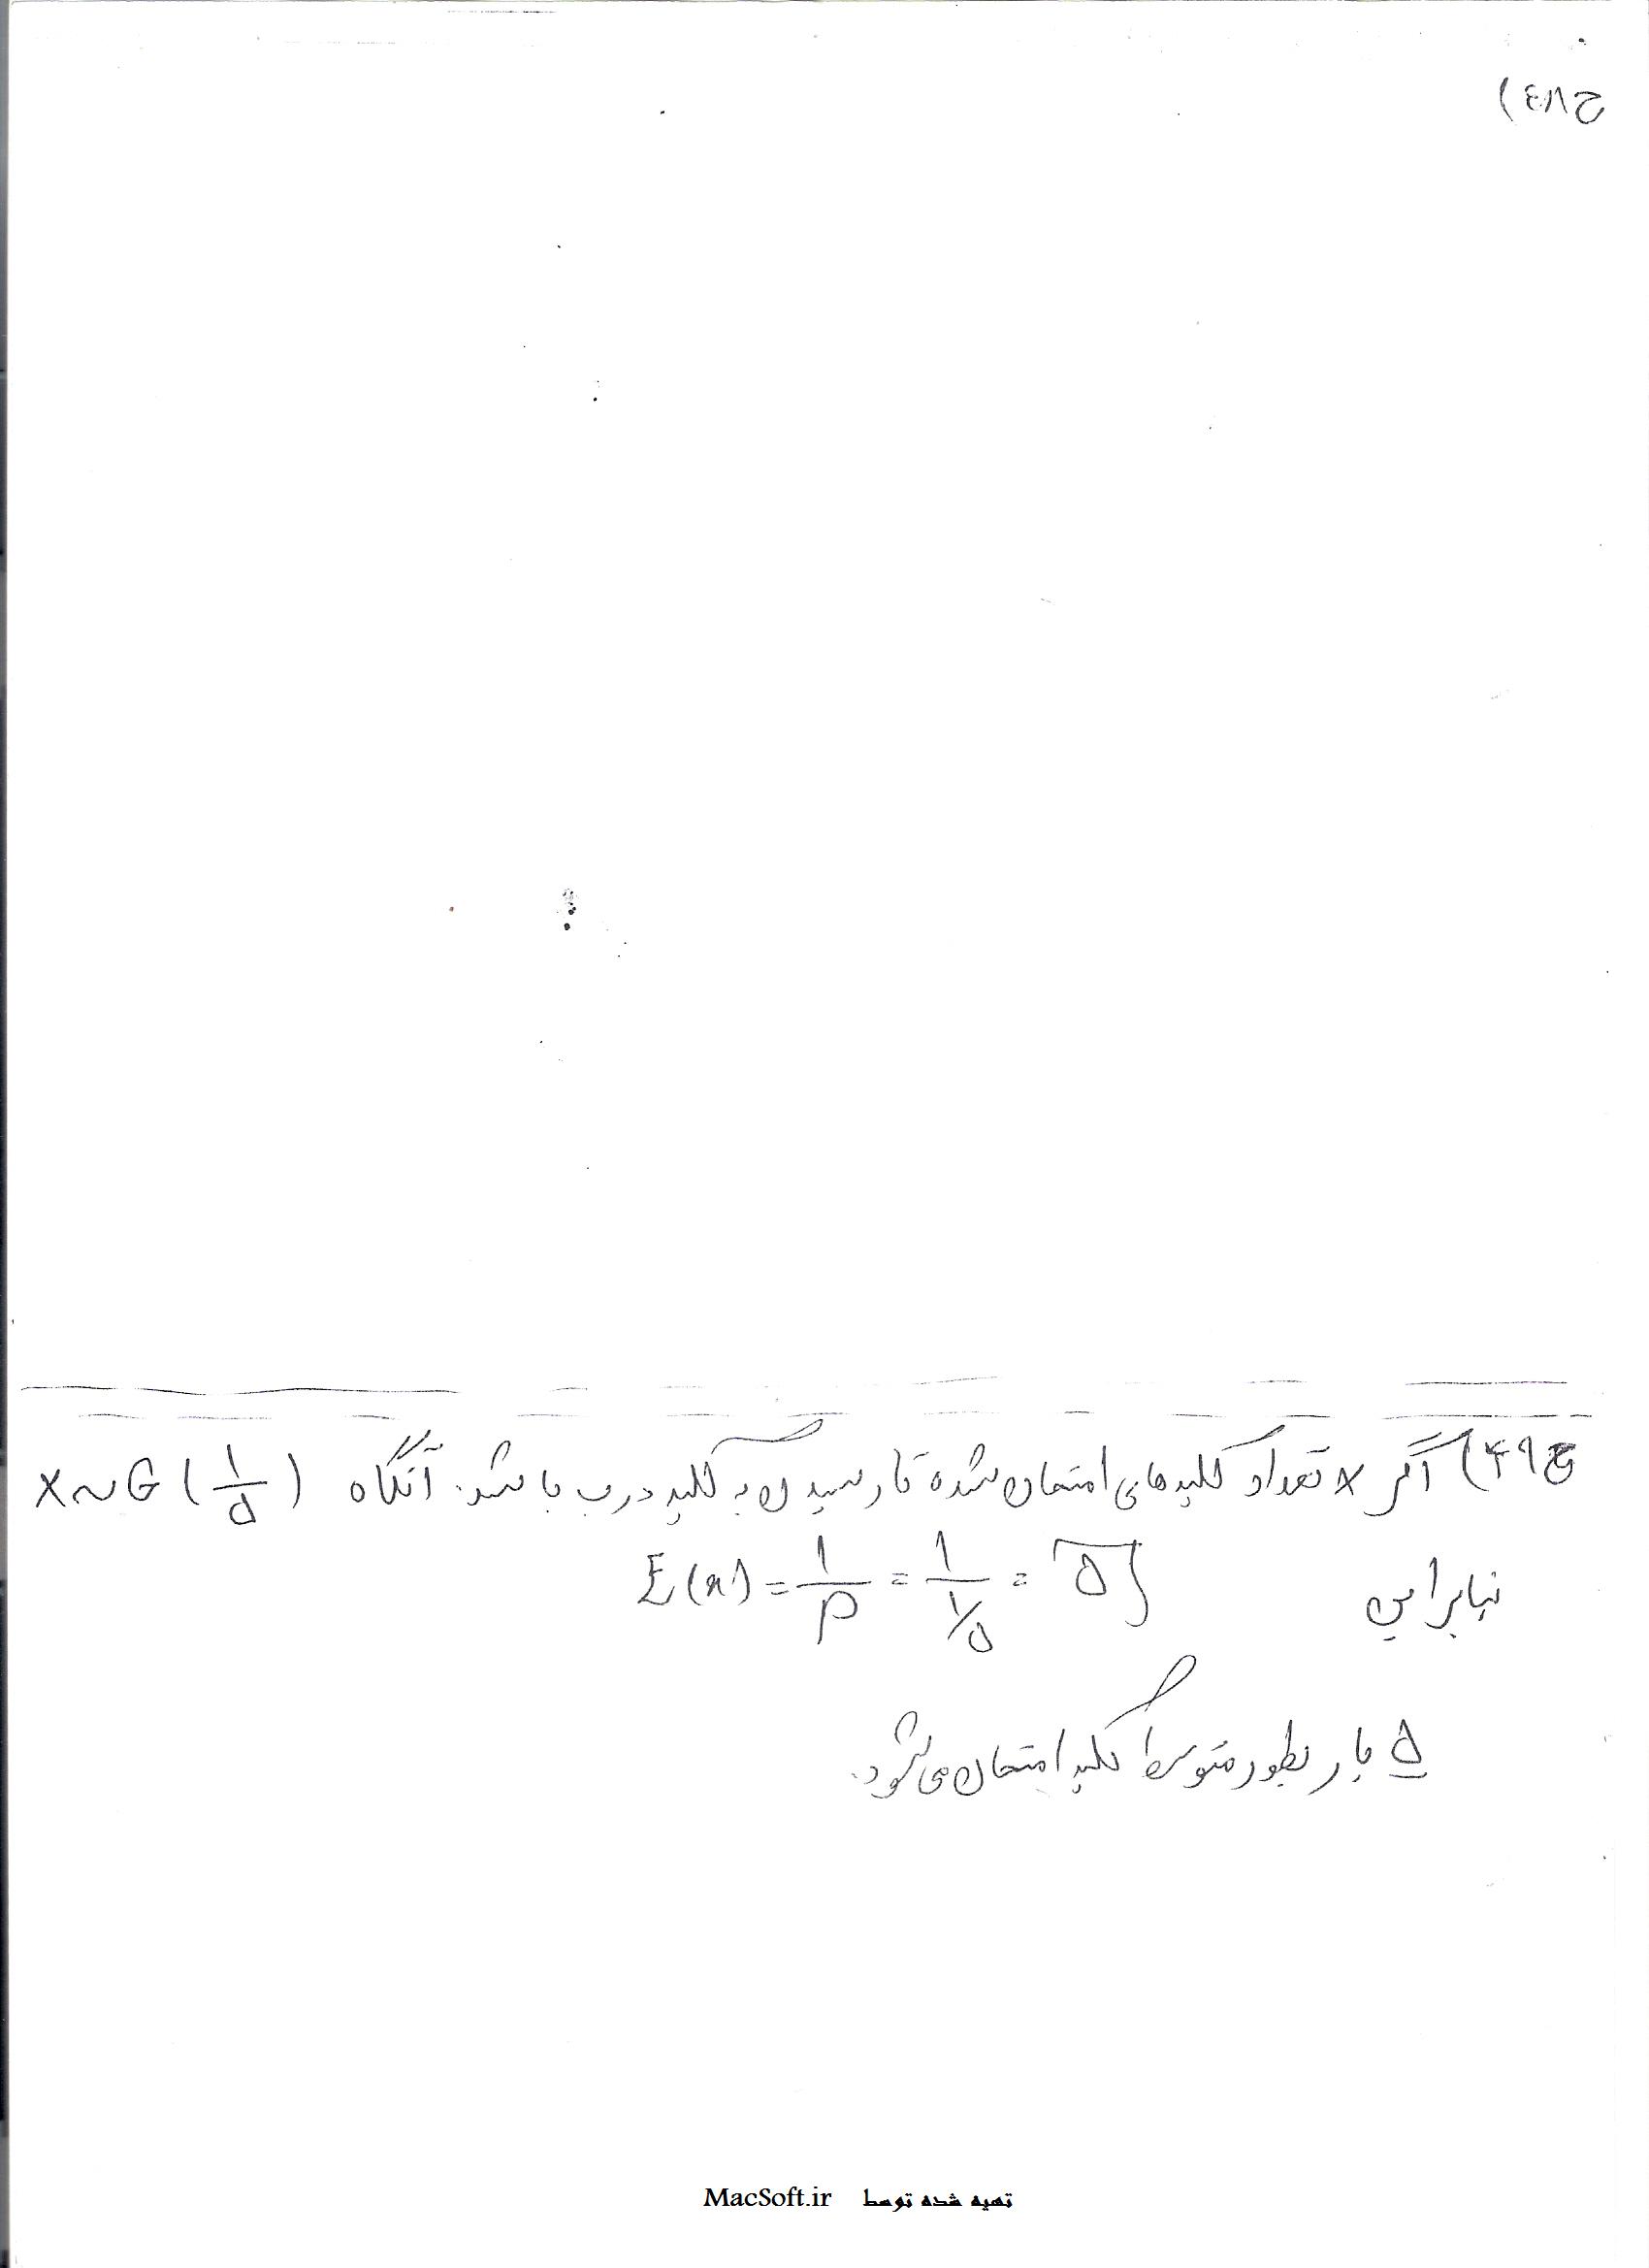 ج ۴۸)
ج ۴۹) اگر X تعداد کلیدهای امتحان شده تا رسیدن به کلید درب باشد. آنگاه X ~ G (۱/۵)
بنابراین E(x) = ۱/p = ۱/(۱/۵) = ۵
۵ بار بطور متوسط کلید امتحان می‌شود.
تهیه شده توسط MacSoft.ir